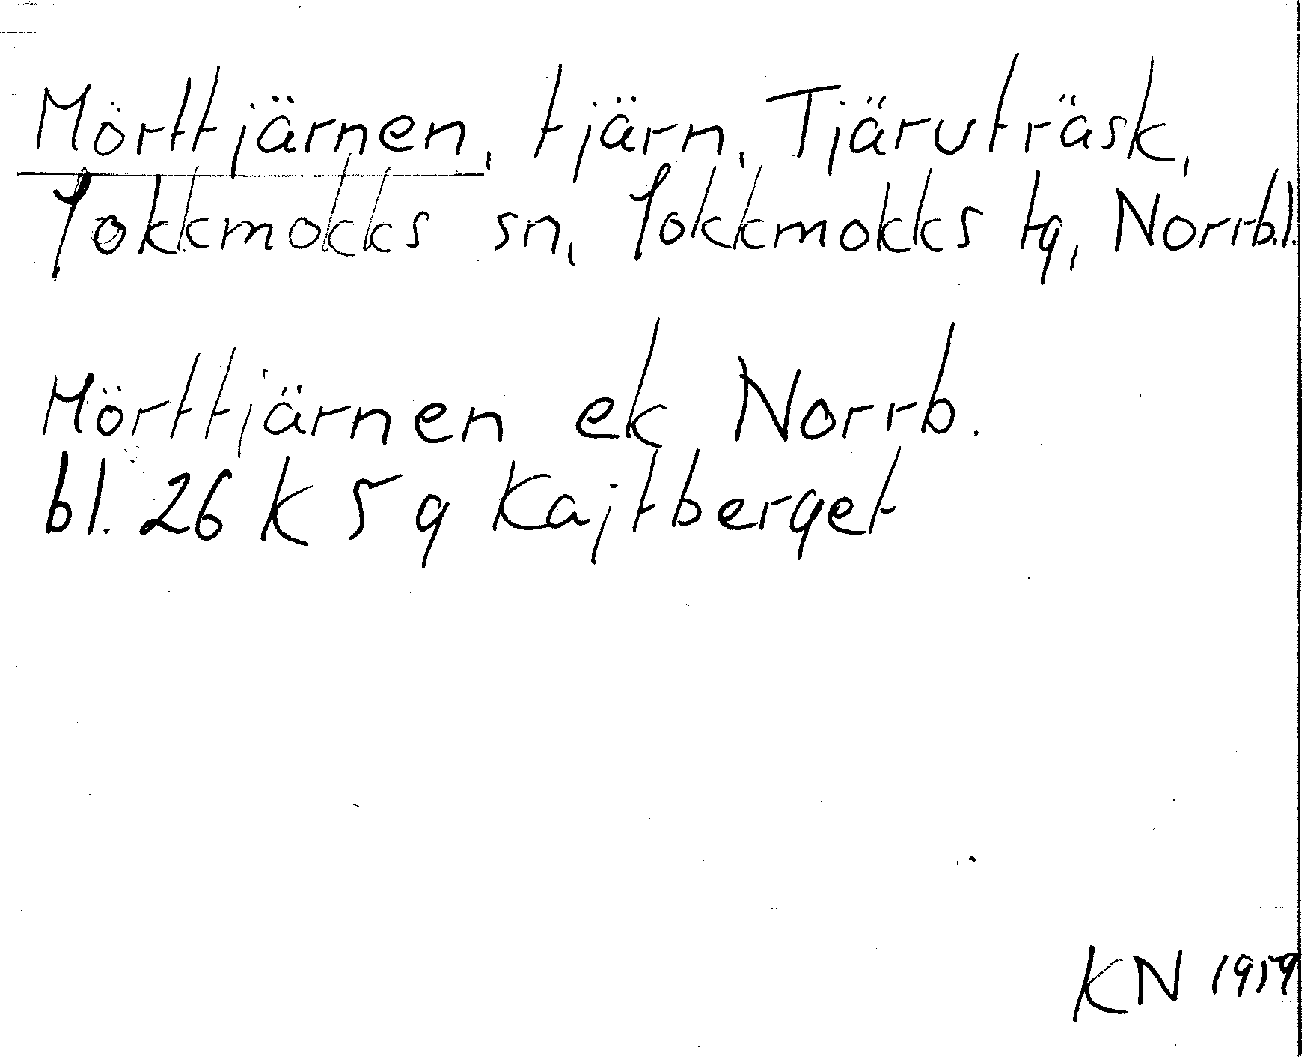 Mörttjärnen, tjärn, Tjäruträsk,
Jokkmokks sn, Jokkmokks tg, Norrb.l.
Mörttjärnen ek Norrb.
bl. 26 K 5 g Kajtberget
KN 1959